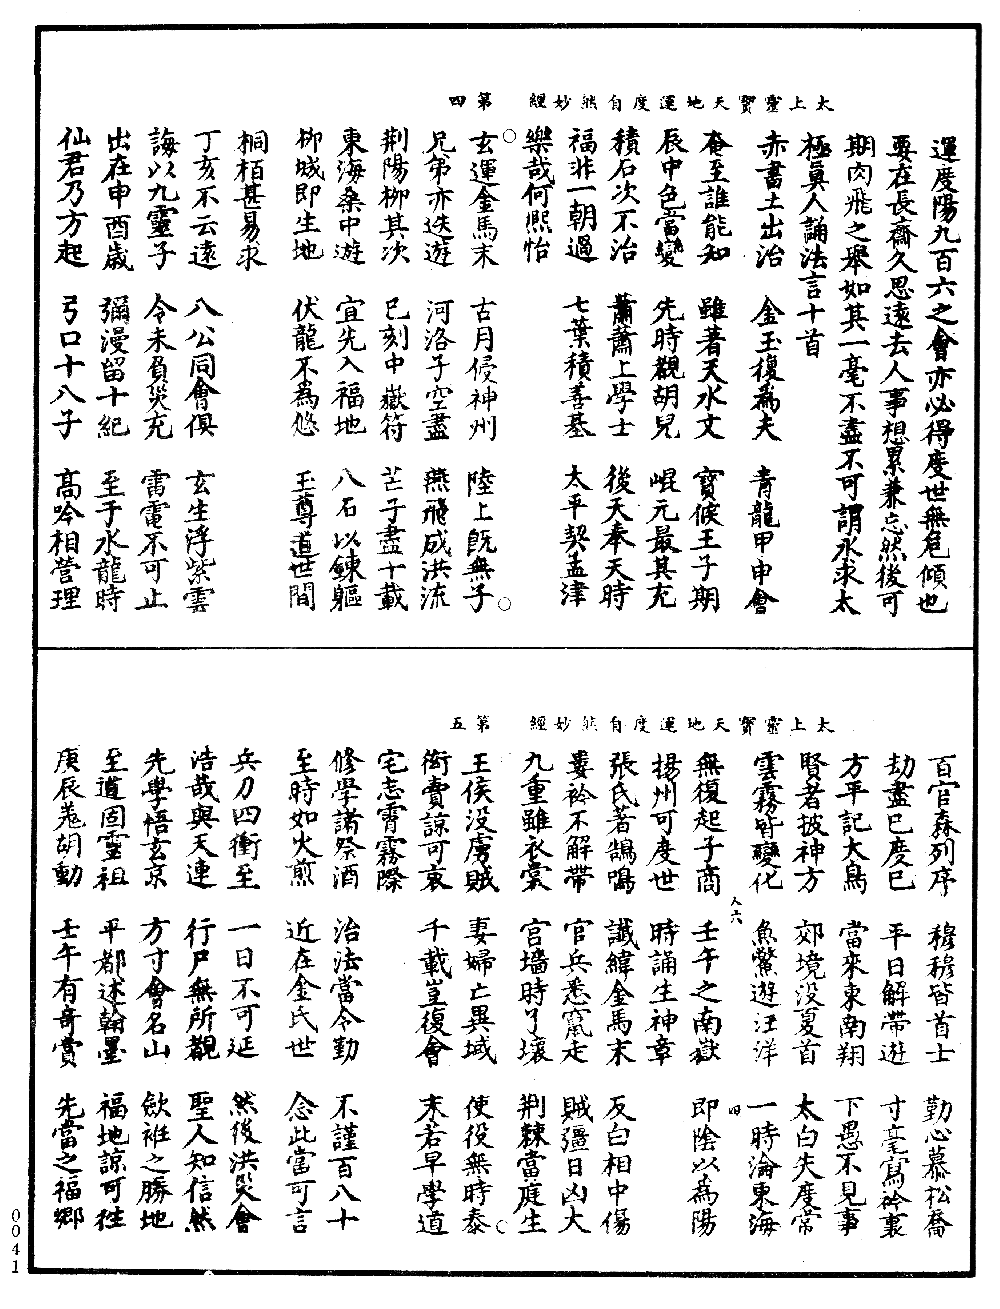 太上靈寶天地運度自然妙經　第四
運度陽九百六之會亦必得度世無危傾也
要在長齋久思遠去人事想累兼忘然後可
期肉飛之舉如其一毫不盡不可謂永求太
極眞人誦法言十首
赤書土出治　金玉復為夫　青龍甲申會
奄至誰能知　雖著天水文　寶候王子期
辰中色當變　先時觀胡兒　崐元最其充
積石次不治　蕭蕭上學士　後天奉天時
福非一朝過　七葉積善基　太平契孟津
樂哉何熙怡
○玄運金馬末　古月侵神州　陸上旣無子○
兄弟亦迭遊　河洛子空盡　燕飛成洪流
荆陽柳其次　已刻中嶽符　芒子盡十載
東海桑中遊　宜先入福地　八石以鍊軀
柳城即生地　伏龍不為悠　王尊道世間
桐栢甚易求
丁亥不云遠　八公同會俱　玄生浮紫雲
誨以九靈子　令未負災充　雷電不可止
出在申酉歲　彌漫留十紀　至于水龍時
仙君乃方起　弓口十八子　高吟相營理
太上靈寶天地運度自然妙經　第五
百官森列序　穆穆皆首士　勤心慕松喬
劫盡巳度巳　平日解帶遊　寸毫寫衿裏
方平記大鳥　當來東南翔　下愚不見事
賢者披神方　郊境没夏首　太白失度常
雲霧皆變化　魚鱉遊汪洋　一時淪東海
人六　四
無復起子商　壬午之南嶽　即陰以為陽
揚州可度世　時誦生神章
張氏著鵠鳴　讖緯金馬末　反白相中傷
婁衿不解帶　官兵悉竄走　賊彊日凶大
九重雖衣裳　宮墻時丁壞　荆棘當庭生
王侯没虜賊　妻婦亡異域　使役無時泰○
衒賣諒可哀　千載豈復會　末若早學道
宅志霄霧際
修學諸祭酒　治法當令勤　不謹百八十
至時如火煎　近在金氏世　念此當可言
兵刀四衝至　一日不可延　然後洪災會
浩哉與天連　行尸無所觀　聖人知信然
先學悟玄京　方寸會名山　歛袵之勝地
至道固靈祖　平都述翰墨　福地諒可徃
庚辰蒐胡動　壬午有奇賞　先當之福鄉
0041